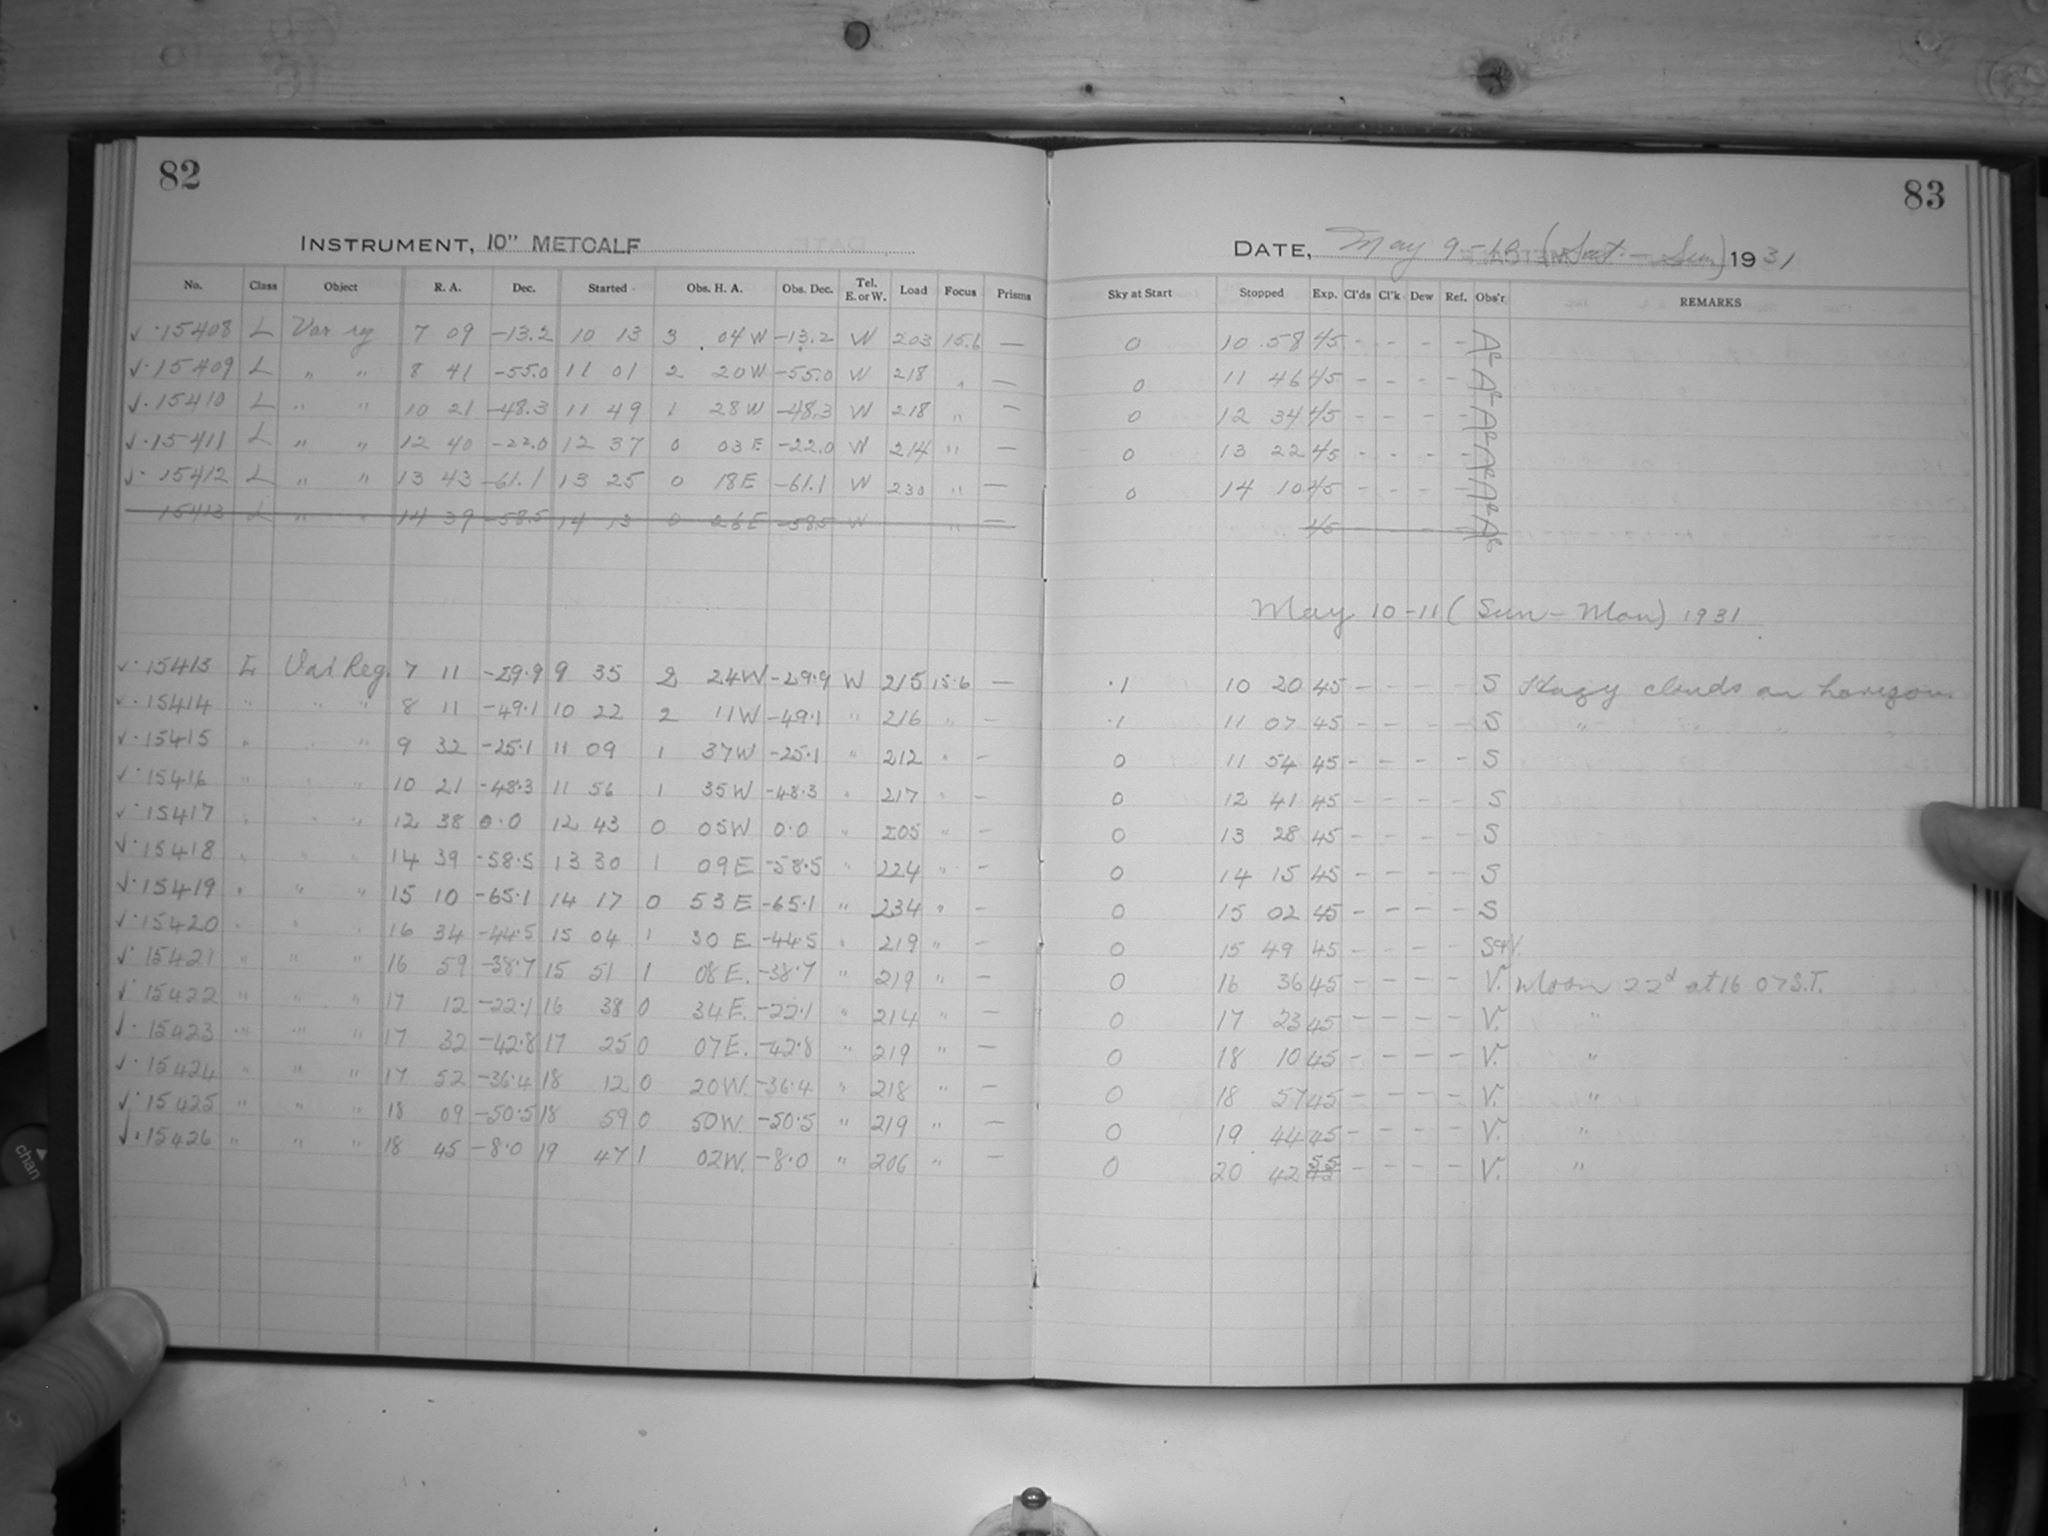 82
INSTRUMENT, 10" METCALF
No. Class Object R. A. Dec. Started Obs. H. A. Obs. Dec. Tel. E. or W. Load Focus Prisms
✓ · 15408 L Var reg 7 09 -13.2 10 13 3 04 W -13.2 W 203 15.6 —
✓ · 15409 L " " 8 41 -55.0 11 01 2 20 W -55.0 W 218 " —
✓ · 15410 L " " 10 21 -48.3 11 49 1 28 W -48.3 W 218 " —
✓ · 15411 L " " 12 40 -22.0 12 37 0 03 E -22.0 W 214 " —
✓ · 15412 L " " 13 43 -61.1 13 25 0 18 E -61.1 W 230 " —
15413 L " " 14 39 -58.5 14 13 0 26 E -58.5 W " —
✓ · 15413 L Var Reg. 7 11 -29.9 9 35 2 24 W -29.9 W 215 15.6 —
✓ · 15414 " " " 8 11 -49.1 10 22 2 11 W -49.1 " 216 " —
✓ · 15415 " " " 9 32 -25.1 11 09 1 37 W -25.1 " 212 " —
✓ · 15416 " " " 10 21 -48.3 11 56 1 35 W -48.3 " 217 " —
✓ · 15417 " " " 12 38 0.0 12 43 0 05 W 0.0 " 205 " —
✓ · 15418 " " " 14 39 -58.5 13 30 1 09 E -58.5 " 224 " —
✓ · 15419 " " " 15 10 -65.1 14 17 0 53 E -65.1 " 234 " —
✓ · 15420 " " " 16 34 -44.5 15 04 1 30 E -44.5 " 219 " —
✓ · 15421 " " " 16 59 -38.7 15 51 1 08 E. -38.7 " 219 " —
✓ · 15422 " " " 17 12 -22.1 16 38 0 34 E. -22.1 " 214 " —
✓ · 15423 " " " 17 32 -42.8 17 25 0 07 E. -42.8 " 219 " —
✓ · 15424 " " " 17 52 -36.4 18 12 0 20 W. -36.4 " 218 " —
✓ · 15425 " " " 18 09 -50.5 18 59 0 50 W. -50.5 " 219 " —
✓ · 15426 " " " 18 45 -8.0 19 47 1 02 W. -8.0 " 206 " —
83
DATE, May 9-10 (Sat. - Sun) 1931
Sky at Start Stopped Exp. Cl'ds Cl'k Dew Ref. Obs'r REMARKS
0 10 58 45 - - - -
0 11 46 45 - - - -
0 12 34 45 - - - -
0 13 22 45 - - - -
0 14 10 45 - - - -
45 - - - -
May 10-11 (Sun - Mon) 1931
.1 10 20 45 - - - - S Hazy clouds on horizon
.1 11 07 45 - - - - S " " " "
0 11 54 45 - - - - S
0 12 41 45 - - - - S
0 13 28 45 - - - - S
0 14 15 45 - - - - S
0 15 02 45 - - - - S
0 15 49 45 - - - - S+V.
0 16 36 45 - - - - V. Moon 22d at 16 07 S.T.
0 17 23 45 - - - - V. "
0 18 10 45 - - - - V. "
0 18 57 45 - - - - V. "
0 19 44 45 - - - - V. "
0 20 42 55 - - - - V. "
chan